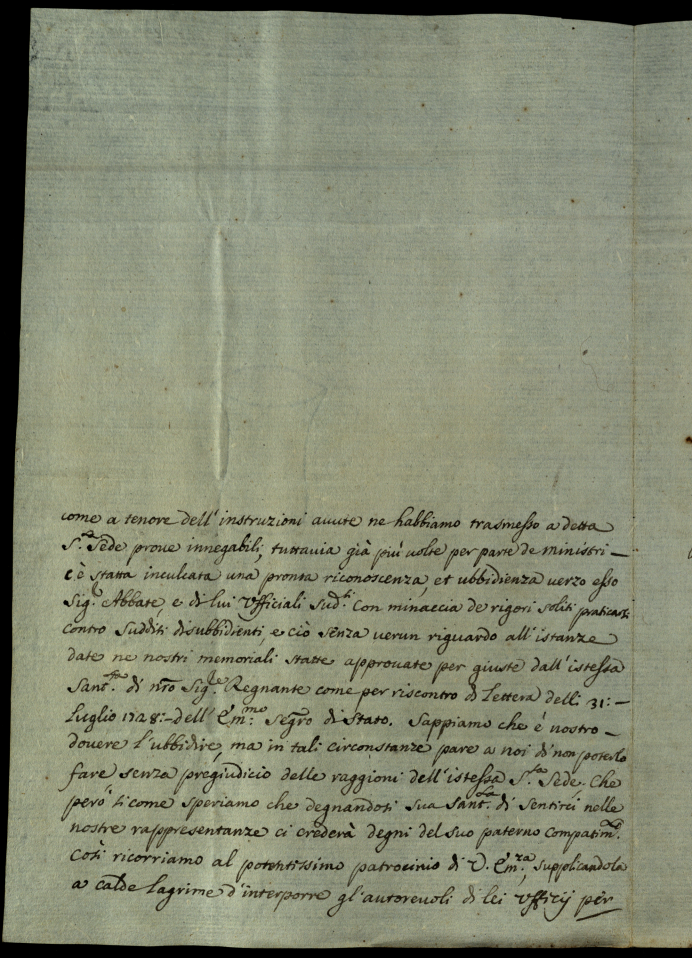 come a tenore dell' instruzioni avute ne habbiamo trasmesso a detta
S.ta Sede prove innegabili, tuttavia già più volte per parte de ministri –
c'è statta inculcata una pronta riconoscenza, et ubbidienza verzo esso
Sig.r Abbate, e di lui Vfficiali sud.ti con minaccia de rigori soliti praticarsi
contro sudditi disubbidienti, e ciò senza verun riguardo all' istanze
date ne nostri memoriali statte approvate per giuste dall' istessa
Sant.tà di nro Sig.re Regnante come per riscontro di Lettera delli 31: –
Luglio 1728: – dell' Em.mo Segro di Stato. Sappiamo che è nostro –
dovere l'ubbidire, ma in tali circonstanze pare a noi di non poterlo
fare senza pregiudicio delle raggioni dell' istessa S.ta Sede. Che
però sicome speriamo che degnandosi sua Sant.tà di sentirci nelle
nostre rappresentanze ci crederà degni del suo paterno compatim.to
Così ricorriamo al potentissimo patrocinio di V. Em.za, supplicandola
a calde lagrime d'interporre gl'autorevoli di lei Vfficij per